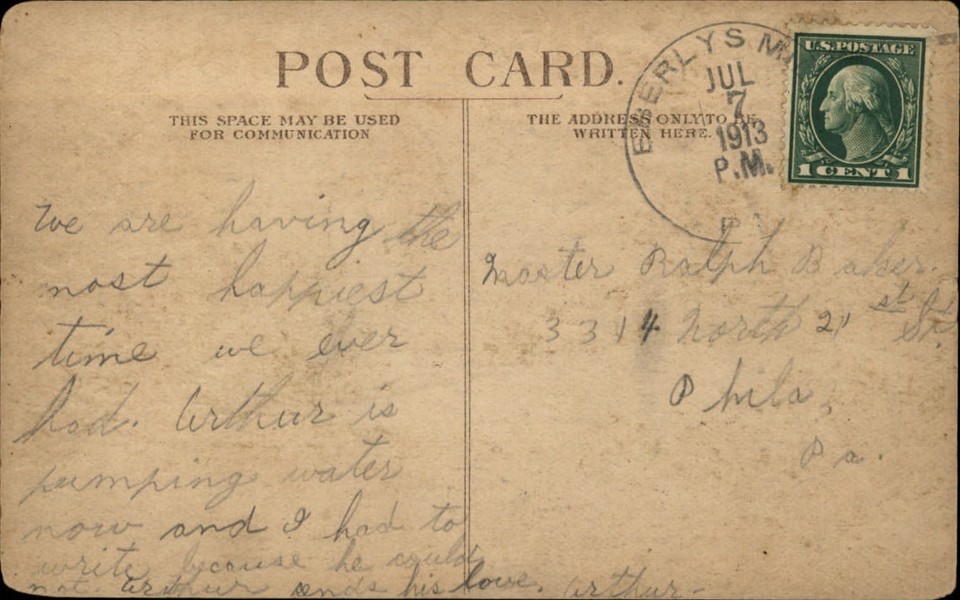 POST CARD.
THIS SPACE MAY BE USED
FOR COMMUNICATION
THE ADDRESS ONLY TO BE
WRITTEN HERE.
EBERLYS M
JUL
7
1913
P.M.
PA
U.S. POSTAGE
1 CENT 1
We are having the
most happiest
time we ever
had. Arthur is
pumping water
now and I had to
write because he could
not Arthur sends his love. Arthur-
Master Ralph Baker.
3314 North 21st St.
Phila,
Pa.